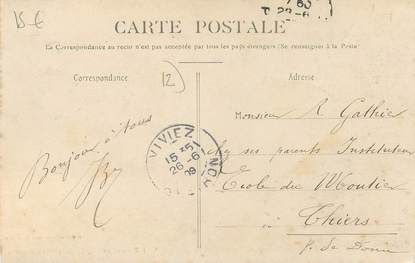 15 €
CARTE POSTALE
La Correspondance au recto n'est pas acceptée par tous les pays étrangers (Se renseigner à la Poste)
Correspondance
12
Adresse
Monsieur R. Gathier
chez ses parents Instituteur
Ecole du Moutier
à
Thiers
P. de Dome
Bonjour à tous
VIVIEZ
15 35
26-6
09